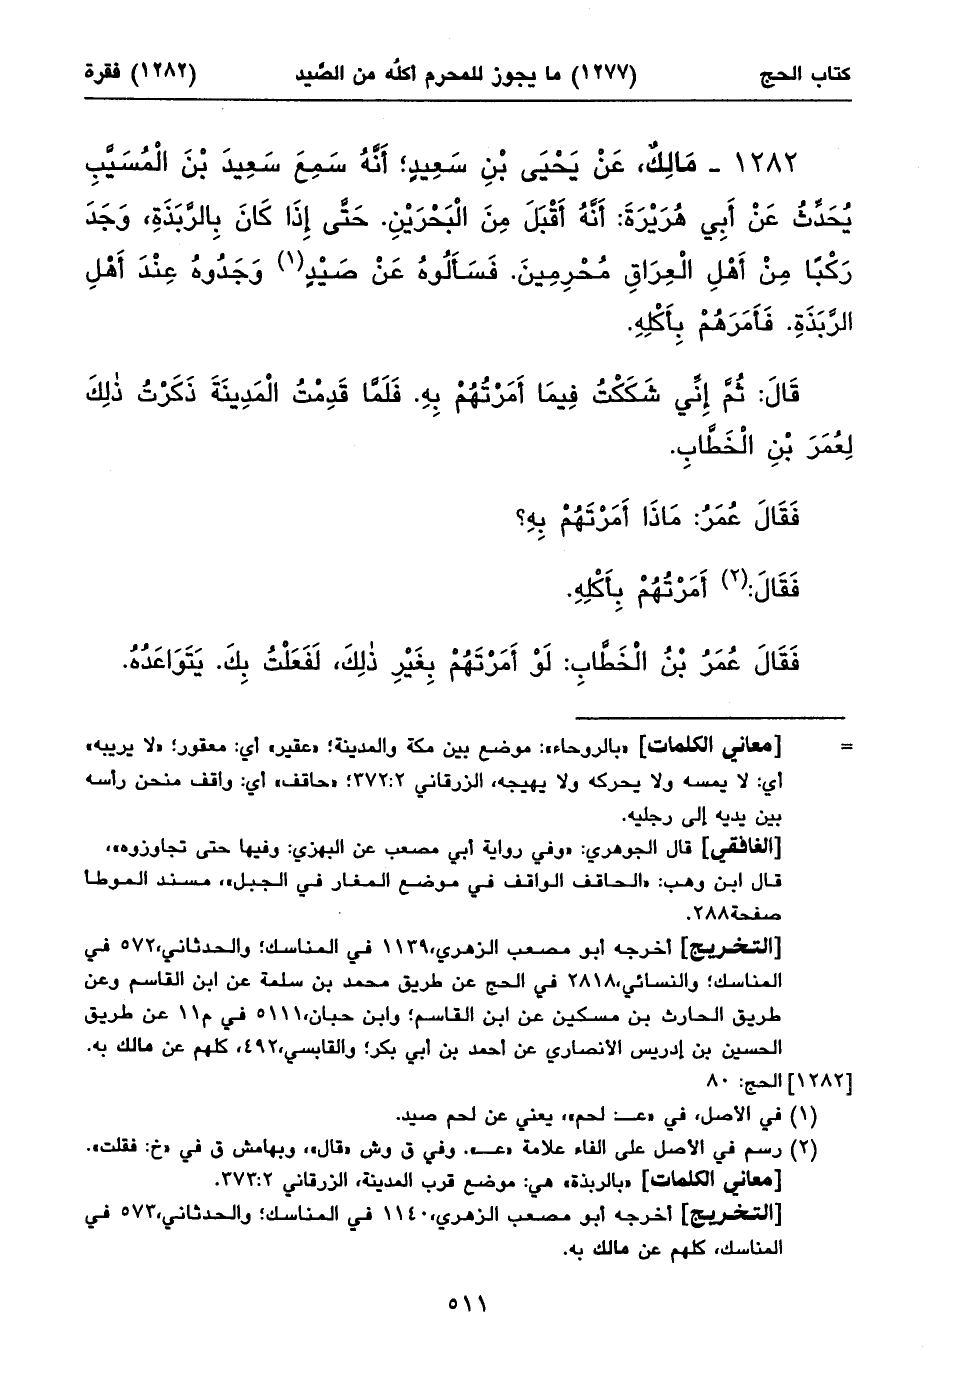 كتاب الحج (١٢٧٧) ما يجوز للمحرم أكله من الصَّيد (١٢٨٢) فقرة
١٢٨٢ - مَالِكٌ، عَنْ يَحْيَى بْنِ سَعِيدٍ؛ أَنَّهُ سَمِعَ سَعِيدَ بْنَ الْمُسَيَّبِ
يُحَدِّثُ عَنْ أَبِي هُرَيْرَةَ: أَنَّهُ أَقْبَلَ مِنَ الْبَحْرَيْنِ. حَتَّى إِذَا كَانَ بِالرَّبَذَةِ، وَجَدَ
رَكْبًا مِنْ أَهْلِ الْعِرَاقِ مُحْرِمِينَ. فَسَأَلُوهُ عَنْ صَيْدٍ(١) وَجَدُوهُ عِنْدَ أَهْلِ
الرَّبَذَةِ. فَأَمَرَهُمْ بِأَكْلِهِ.
قَالَ: ثُمَّ إِنِّي شَكَكْتُ فِيمَا أَمَرْتُهُمْ بِهِ. فَلَمَّا قَدِمْتُ الْمَدِينَةَ ذَكَرْتُ ذٰلِكَ
لِعُمَرَ بْنِ الْخَطَّابِ.
فَقَالَ عُمَرُ: مَاذَا أَمَرْتَهُمْ بِهِ؟
فَقَالَ:(٢) أَمَرْتُهُمْ بِأَكْلِهِ.
فَقَالَ عُمَرُ بْنُ الْخَطَّابِ: لَوْ أَمَرْتَهُمْ بِغَيْرِ ذٰلِكَ، لَفَعَلْتُ بِكَ. يَتَوَاعَدُهُ.
= [معاني الكلمات] «بالروحاء»: موضع بين مكة والمدينة؛ «عقير» أي: معقور؛ «لا يريبه»
أي: لا يمسه ولا يحركه ولا يهيجه، الزرقاني ٣٧٢:٢؛ «حاقف» أي: واقف منحن رأسه
بين يديه إلى رجليه.
[الغافقي] قال الجوهري: «وفي رواية أبي مصعب عن البهزي: وفيها حتى تجاوزوه»،
قال ابن وهب: «الحاقف الواقف في موضع المغار في الجبل»، مسند الموطأ
صفحة٢٨٨.
[التخريج] أخرجه أبو مصعب الزهري،١١٣٩ في المناسك؛ والحدثاني،٥٧٢ في
المناسك؛ والنسائي،٢٨١٨ في الحج عن طريق محمد بن سلمة عن ابن القاسم وعن
طريق الحارث بن مسكين عن ابن القاسم؛ وابن حبان،٥١١١ في م١١ عن طريق
الحسين بن إدريس الأنصاري عن أحمد بن أبي بكر؛ والقابسي،٤٩٢، كلهم عن مالك به.
[١٢٨٢] الحج: ٨٠
(١) في الأصل، في «عـ: لحم»، يعني عن لحم صيد.
(٢) رسم في الأصل على الفاء علامة «عـ». وفي ق وش «قال»، وبهامش ق في «خ: فقلت».
[معاني الكلمات] «بالربذة» هي: موضع قرب المدينة، الزرقاني ٣٧٣:٢.
[التخريج] أخرجه أبو مصعب الزهري،١١٤٠ في المناسك؛ والحدثاني،٥٧٣ في
المناسك، كلهم عن مالك به.
٥١١